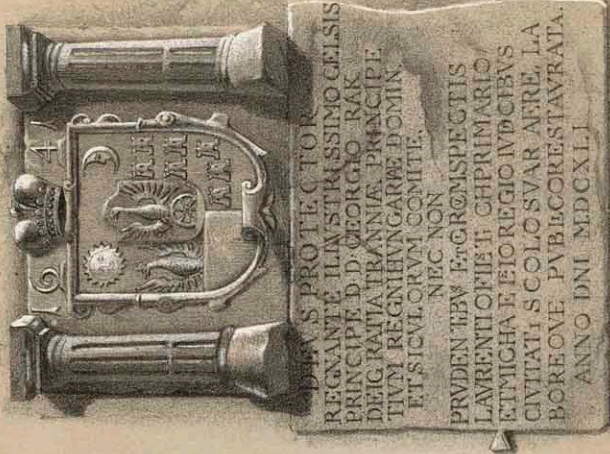 16 41
DEVS PROTECTOR
REGNANTE ILLVSTRISSIMO CELSIS
PRINCIPE D. D. GEORGIO RAK
DEI GRATIA TRANNIÆ PRINCIPE
REGNI HVNGARIÆ DOMIN
ET SICVLORVM COMITE.
NEC NON
PRVDENTIBVS ET CIRCMSPECTIS
PRIMARIO
REGIO IVDCIBVS
CIVITATIS COLOSVAR AERE LA
BOREQVE PVBLCO RESTAVRATA.
ANNO DNI MDCXLI